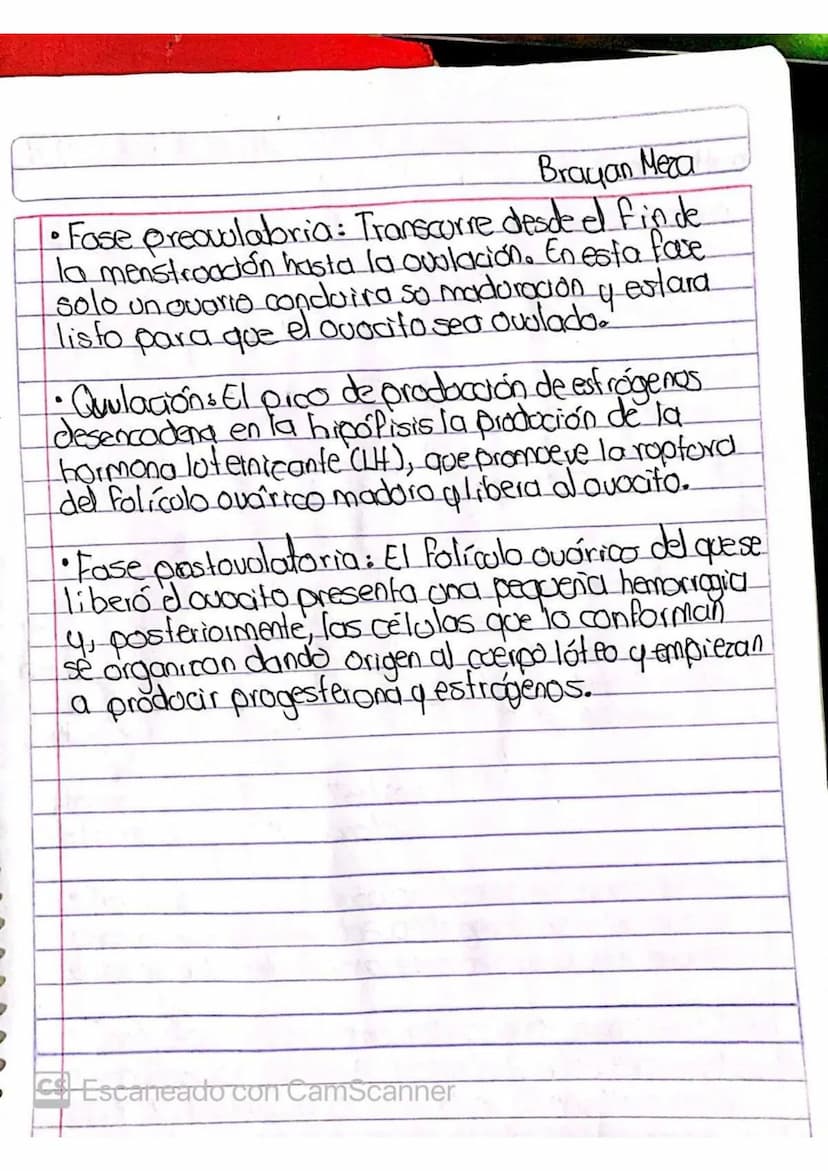 Brayan Meza
• Fase preovulabria: Transcurre desde el fin de
la menstruación hasta la ovulación. En esta fase
solo un ovario conduira su maduración y estara
listo para que el ovocito sea ovulado.
• Ovulación: El pico de producción de estrógenos
desencadena en la hipófisis la produción de la
hormona luteinicante (LH), que promueve la ruptura
del folículo ovárico maduro y libera al ovocito.
• Fase postovulatoria: El folículo ovárico del que se
liberó el ovocito presenta una pequeña hemorragia
y, posteriormente, las células que lo conforman
se organizan dando origen al cuerpo lúteo y empiezan
a producir progesterona y estrógenos.
CS Escaneado con CamScanner